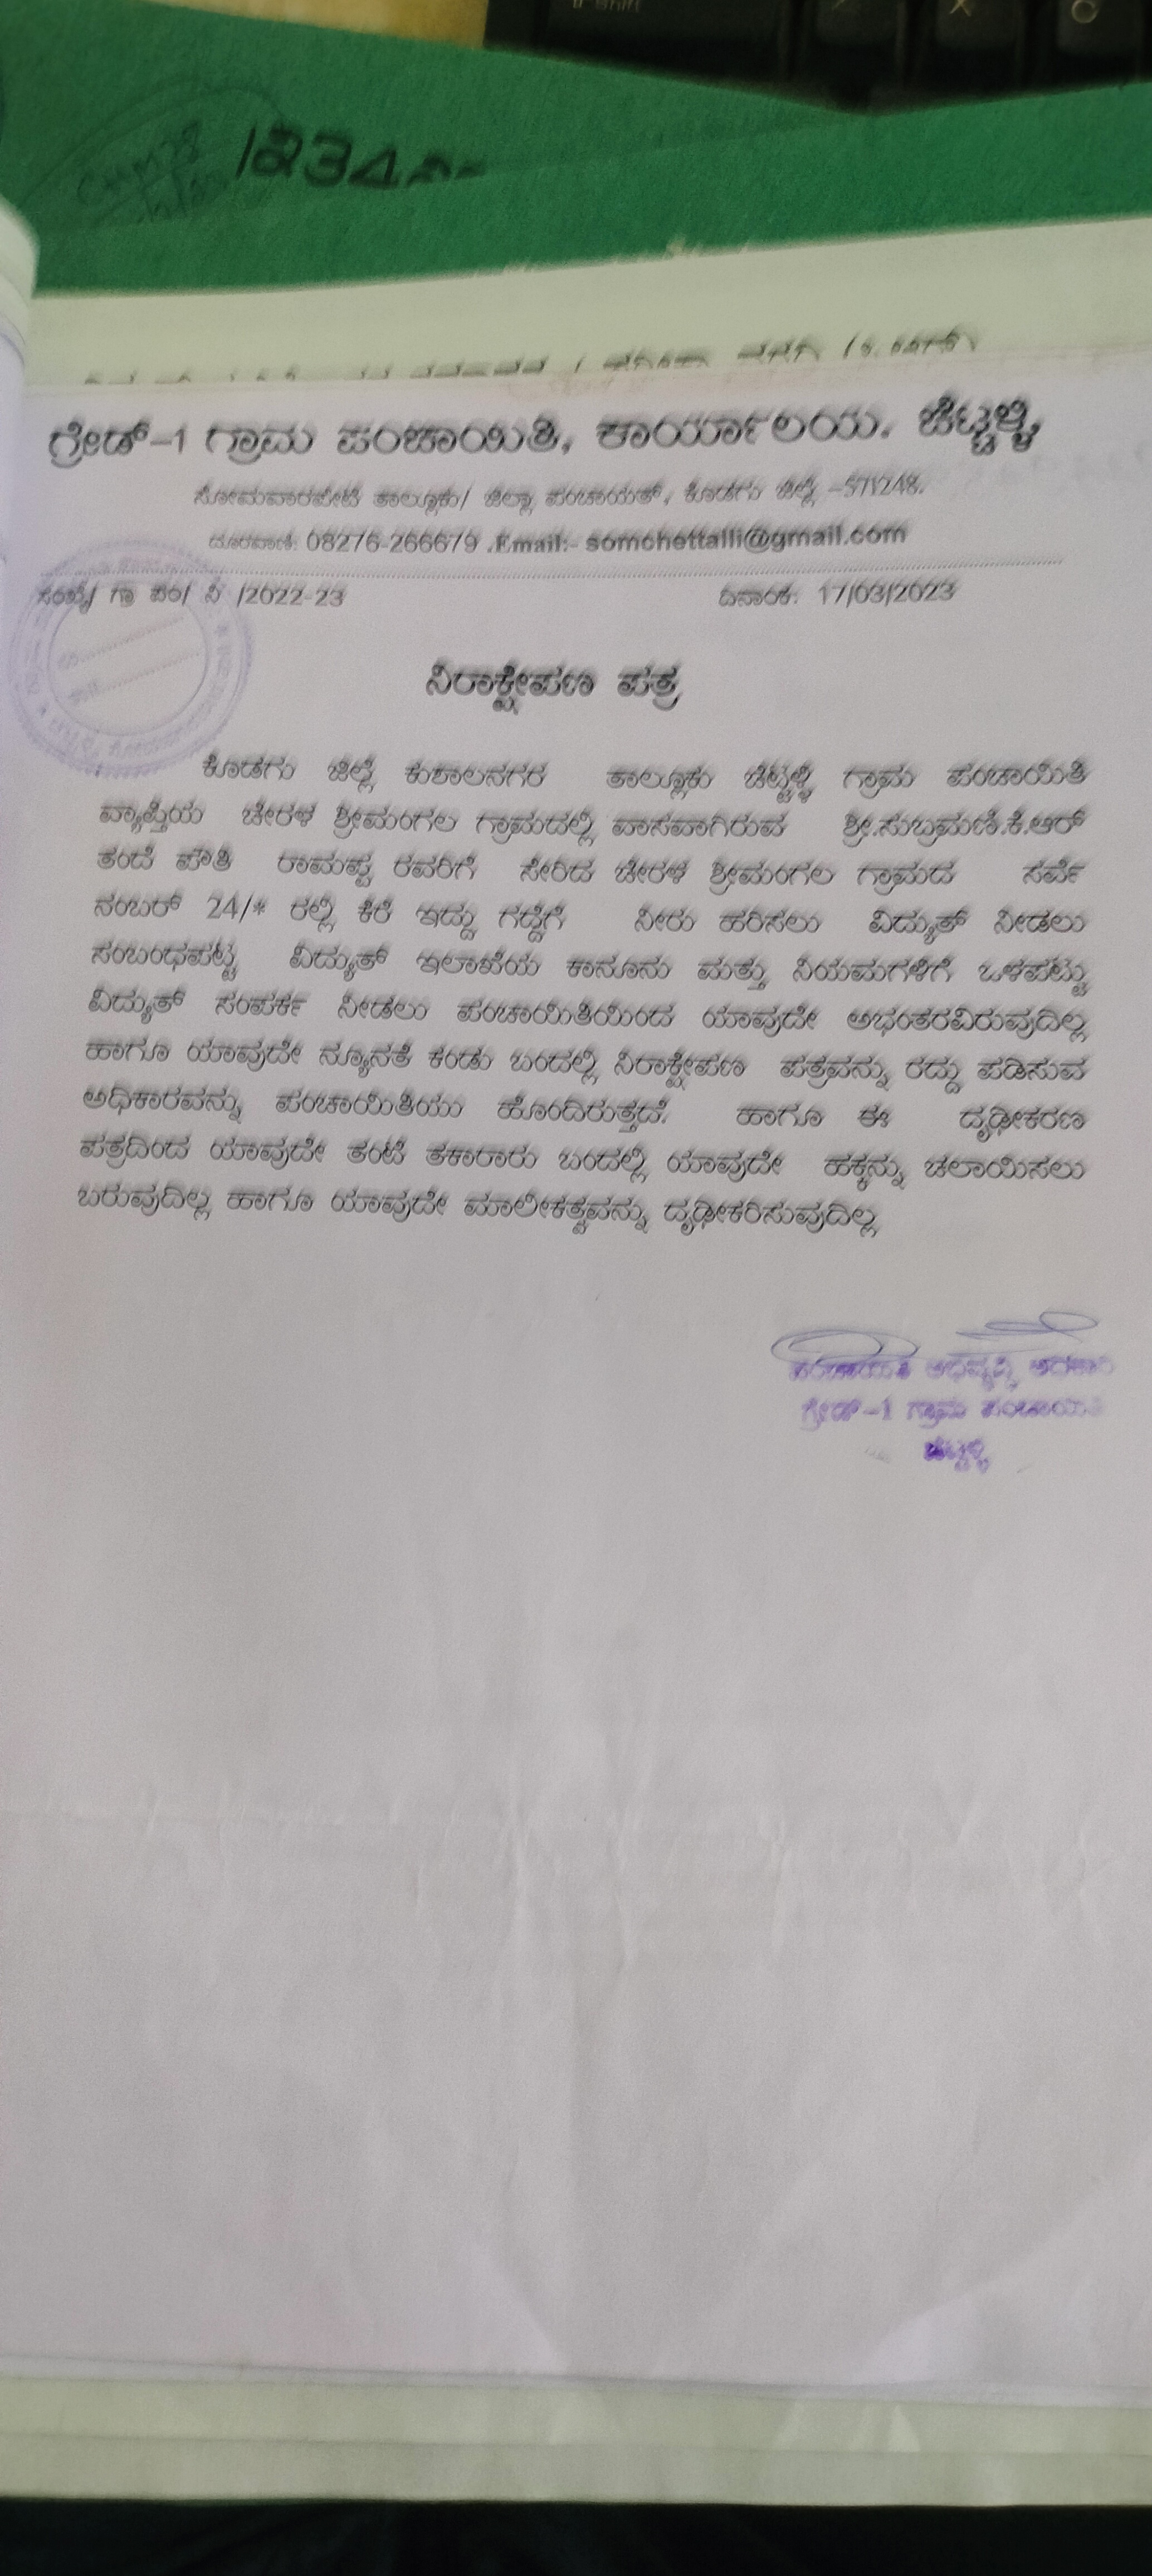 1234
ಗ್ರೇಡ್-1 ಗ್ರಾಮ ಪಂಚಾಯಿತಿ, ಕಾರ್ಯಾಲಯ. ಚೆಟ್ಟಳ್ಳಿ
ಸೋಮವಾರಪೇಟೆ ತಾಲ್ಲೂಕು/ ಜಿಲ್ಲಾ ಪಂಚಾಯತ್, ಕೊಡಗು ಜಿಲ್ಲೆ -571248.
ದೂರವಾಣಿ: 08276-266679 .Email:- somchettalli@gmail.com
ಸಂಖ್ಯೆ/ ಗ್ರಾ ಪಂ/ ನಿ /2022-23 ದಿನಾಂಕ: 17/03/2023
ನಿರಾಕ್ಷೇಪಣ ಪತ್ರ
ಕೊಡಗು ಜಿಲ್ಲೆ ಕುಶಾಲನಗರ ತಾಲ್ಲೂಕು ಚೆಟ್ಟಳ್ಳಿ ಗ್ರಾಮ ಪಂಚಾಯಿತಿ
ವ್ಯಾಪ್ತಿಯ ಚೇರಳ ಶ್ರೀಮಂಗಲ ಗ್ರಾಮದಲ್ಲಿ ವಾಸವಾಗಿರುವ ಶ್ರೀ.ಸುಬ್ರಮಣಿ.ಕೆ.ಆರ್
ತಂದೆ ಪೌತಿ ರಾಮಪ್ಪ ರವರಿಗೆ ಸೇರಿದ ಚೇರಳ ಶ್ರೀಮಂಗಲ ಗ್ರಾಮದ ಸರ್ವೆ
ನಂಬರ್ 24/* ರಲ್ಲಿ ಕೆರೆ ಇದ್ದು ಗದ್ದೆಗೆ ನೀರು ಹರಿಸಲು ವಿದ್ಯುತ್ ನೀಡಲು
ಸಂಬಂಧಪಟ್ಟ ವಿದ್ಯುತ್ ಇಲಾಖೆಯ ಕಾನೂನು ಮತ್ತು ನಿಯಮಗಳಿಗೆ ಒಳಪಟ್ಟು
ವಿದ್ಯುತ್ ಸಂಪರ್ಕ ನೀಡಲು ಪಂಚಾಯಿತಿಯಿಂದ ಯಾವುದೇ ಅಭ್ಯಂತರವಿರುವುದಿಲ್ಲ
ಹಾಗೂ ಯಾವುದೇ ನ್ಯೂನತೆ ಕಂಡು ಬಂದಲ್ಲಿ ನಿರಾಕ್ಷೇಪಣ ಪತ್ರವನ್ನು ರದ್ದು ಪಡಿಸುವ
ಅಧಿಕಾರವನ್ನು ಪಂಚಾಯಿತಿಯು ಹೊಂದಿರುತ್ತದೆ. ಹಾಗೂ ಈ ದೃಢೀಕರಣ
ಪತ್ರದಿಂದ ಯಾವುದೇ ತಂಟೆ ತಕಾರಾರು ಬಂದಲ್ಲಿ ಯಾವುದೇ ಹಕ್ಕನ್ನು ಚಲಾಯಿಸಲು
ಬರುವುದಿಲ್ಲ ಹಾಗೂ ಯಾವುದೇ ಮಾಲೀಕತ್ವವನ್ನು ದೃಢೀಕರಿಸುವುದಿಲ್ಲ
ಪಂಚಾಯಿತಿ ಅಭಿವೃದ್ಧಿ ಅಧಿಕಾರಿ
ಗ್ರೇಡ್-1 ಗ್ರಾಮ ಪಂಚಾಯಿತಿ
ಚೆಟ್ಟಳ್ಳಿ